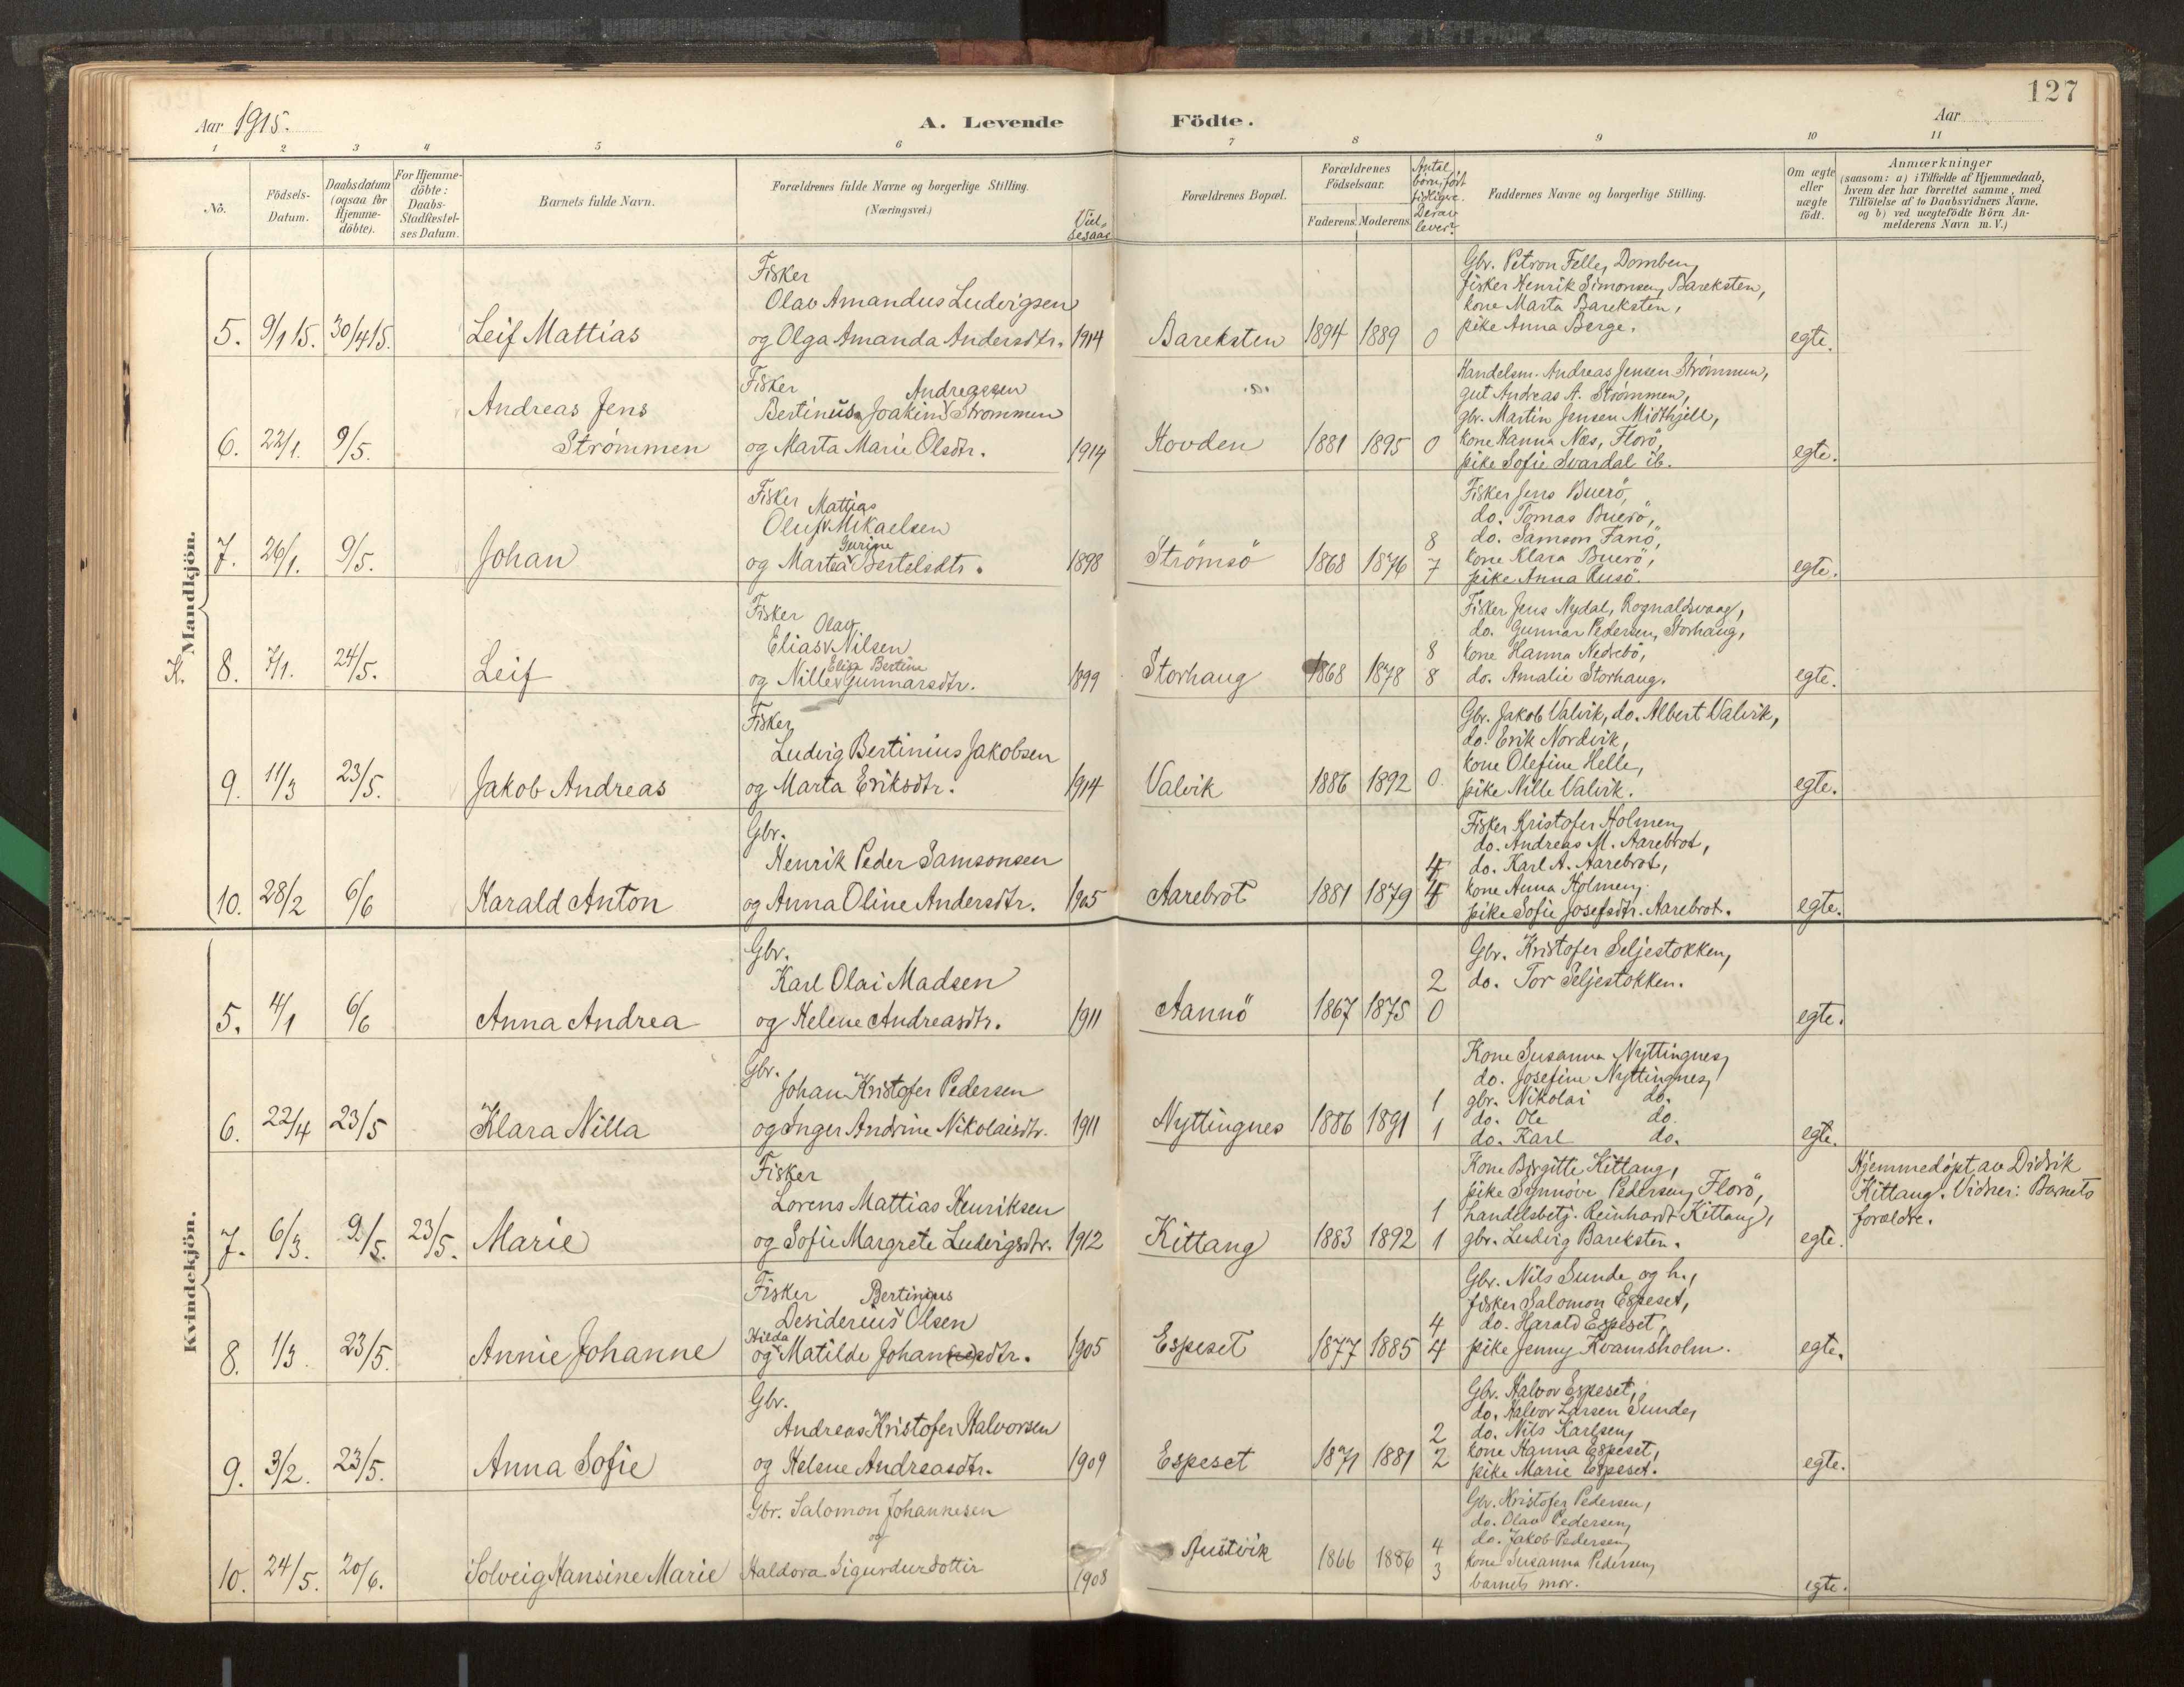 127
Aar 1915.
A. Levende Födte.
Aar
1 2 3 4 5 6 7 8 9 10 11
No.
Födsels-Datum.
Daabsdatum (ogsaa for Hjemme-döbte).
For Hjemme-döbte: Daabs-Stadfæstel-ses Datum.
Barnets fulde Navn.
Forældrenes fulde Navne og borgerlige Stilling.
(Næringsvei.)
Viel-sesaar
Forældrenes Bopæl.
Forældrenes Födselsaar.
Faderens. Moderens.
Antal börn, født tidligere. Derav lever:
Faddernes Navne og borgerlige Stilling.
Om ægte eller uægte födt.
Anmærkninger
(saasom: a) i Tilfælde af Hjemmedaab,
hvem der har forrettet samme, med
Tilföielse af to Daabsvidners Navne,
og b) ved uægtefödte Börn An-
melderens Navn m. V.)
Mandkjön.
K.
5. 9/1 15. 30/4 15. Leif Mattias
Fisker
Olav Amandus Ludvigsen
og Olga Amanda Andersdtr. 1914
Bareksten 1894 1889 0
Gbr. Petron Felle, Domben,
fisker Henrik Simonsen, Bareksten,
kone Marta Bareksten,
pike Anna Berge.
egte.
6. 22/1. 9/5. Andreas Jens
Strömmen
Fisker Andreassen
Bertinus Joakim Strømmen
og Marta Marie Olsdtr. 1914
Hovden 1881 1895 0
Handelsm. Andreas Jensen Strømmen,
gut Andreas A. Strømmen,
gbr. Martin Jensen Midthjell,
kone Hanna Næs, Florö,
pike Sofie Svardal ib.
egte.
7. 26/1. 9/5. Johan
Fisker Mattias
Oluf Mikaelsen
Gurine
og Martea Bertelsdtr. 1898
Strömsö 1868 1876 8 7
Fisker Jens Buerö,
do. Tomas Buerö,
do. Samson Fanö,
kone Klara Buerö,
pike Anna Rusö.
egte.
8. 7/1. 24/5. Leif
Fisker Olav
Elias Nilsen
Elisa Bertine
og Nille Gunnarsdtr. 1899
Storhaug 1868 1878 8 8
Fisker Jens Nydal, Rognaldsvaag,
do. Gunnar Pedersen, Storhaug,
kone Hanna Nedrebö,
do. Amalie Storhaug.
egte.
9. 11/3 23/5. Jakob Andreas
Fisker
Ludvig Bertinius Jakobsen
og Marta Eriksdtr. 1914
Valvik 1886 1892 0.
Gbr. Jakob Valvik, do. Albert Valvik,
do. Erik Nordvik,
kone Olefine Helle,
pike Nille Valvik.
egte.
10. 28/2 6/6 Harald Anton
Gbr.
Henrik Peder Samsonsen
og Anna Oline Andersdtr. 1905
Aarebrot 1881 1879 4 4
Fisker Kristofer Holmen,
do. Andreas M. Aarebrot,
do. Karl A. Aarebrot,
kone Anna Holmen,
pike Sofie Josefsdtr. Aarebrot.
egte.
Kvindekjön.
5. 4/1 6/6 Anna Andrea
Gbr.
Karl Olai Madsen
og Helene Andreasdtr. 1911
Aannö 1867 1875 2 0
Gbr. Kristofer Seljestokken,
do. Tor Seljestokken.
egte.
6. 22/4 23/5 Klara Nilla
Gbr.
Johan Kristofer Pedersen
og Inger Andrine Nikolaisdtr. 1911
Nyttingnes 1886 1891 1 1
Kone Susanna Nyttingnes,
do. Josefine Nyttingnes,
gbr. Nikolai do.
do. Ole do.
do. Karl do.
egte.
7. 6/3. 9/5. 23/5. Marie
Fisker
Lorens Mattias Henriksen
og Sofie Margrete Ludvigsdtr. 1912
Kittang 1883 1892 1 1
Kone Birgitte Kittang,
pike Synnöve Pedersen, Florö,
handelsbetj. Reinhardt Kittang,
gbr. Ludvig Bareksten.
egte.
Hjemmedöpt av Didrik
Kittang. Vidner: Barnets
forældre.
8. 1/3 23/5. Annie Johanne
Fisker Bertinius
Desiderius Olsen
Hilda
og Matilde Johannesdtr. 1905
Espeset 1877 1885 4 4
Gbr. Nils Sunde og h.,
fisker Salomon Espeset,
do. Harald Espeset,
pike Jenny Kvamsholm.
egte.
9. 3/2. 23/5. Anna Sofie
Gbr.
Andreas Kristofer Halvorsen
og Helene Andreasdtr. 1909
Espeset 1871 1881 2 2
Gbr. Halvor Espeset,
do. Halvor Larsen Sunde,
do. Nils Karlsen,
kone Hanna Espeset,
pike Marie Espeset.
egte.
10. 24/5. 20/6. Solveig Hansine Marie
Gbr. Salomon Johannesen
og
Haldora Sigurdurdottir 1908
Austvik 1866 1886 4 3
Gbr. Kristofer Pedersen,
do. Olav Pedersen,
do. Jakob Pedersen,
kone Susanna Pedersen,
barnets mor.
egte.